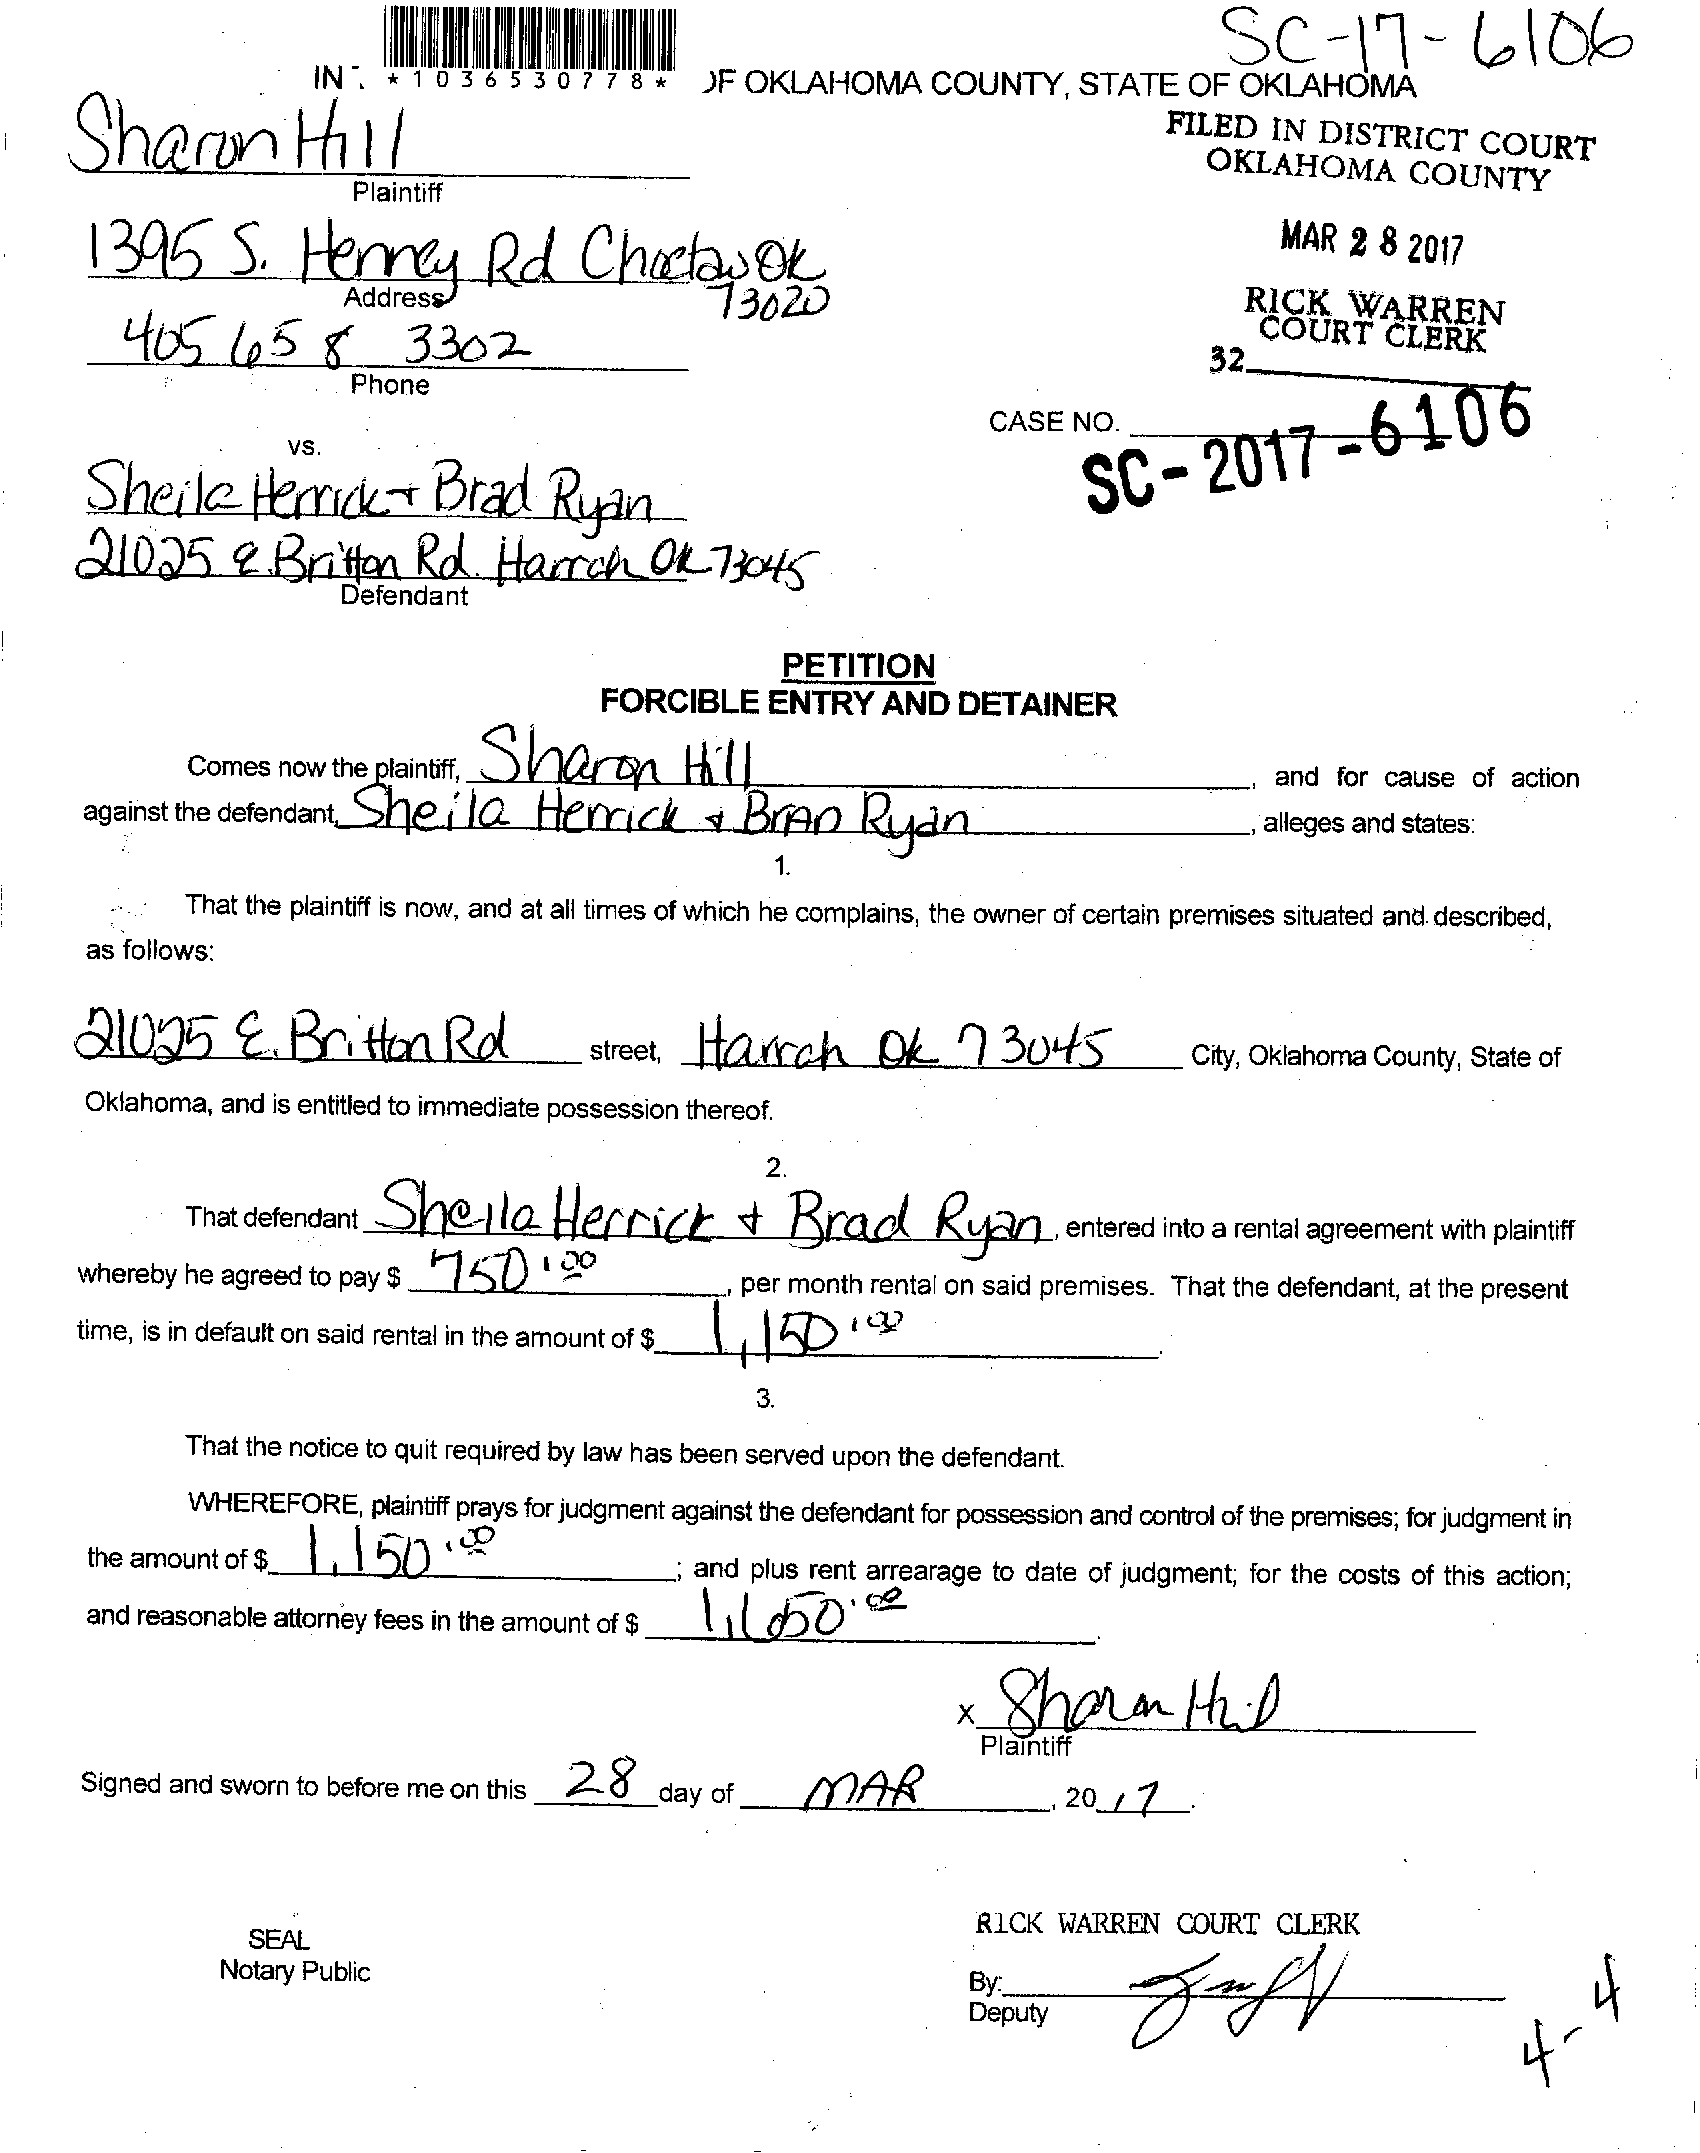 SC-17-6106
IN
*1036530778*
OF OKLAHOMA COUNTY, STATE OF OKLAHOMA
Sharon Hill
Plaintiff
FILED IN DISTRICT COURT
OKLAHOMA COUNTY
1395 S. Henney Rd Choctaw Ok
73020
Address
MAR 28 2017
405 658 3302
Phone
RICK WARREN
COURT CLERK
32
CASE NO.
SC-2017-6106
vs.
Sheila Herrick + Brad Ryan
21025 E. Britton Rd. Harrah OK 73045
Defendant
PETITION
FORCIBLE ENTRY AND DETAINER
Comes now the plaintiff, Sharon Hill, and for cause of action
against the defendant, Sheila Herrick + Bran Ryan, alleges and states:
1.
That the plaintiff is now, and at all times of which he complains, the owner of certain premises situated and described,
as follows:
21025 E. Britton Rd street, Harrah Ok 73045 City, Oklahoma County, State of
Oklahoma, and is entitled to immediate possession thereof.
2.
That defendant Sheila Herrick + Brad Ryan, entered into a rental agreement with plaintiff
whereby he agreed to pay $ 750.00, per month rental on said premises. That the defendant, at the present
time, is in default on said rental in the amount of $ 1,150.00.
3.
That the notice to quit required by law has been served upon the defendant.
WHEREFORE, plaintiff prays for judgment against the defendant for possession and control of the premises; for judgment in
the amount of $ 1,150.00; and plus rent arrearage to date of judgment; for the costs of this action;
and reasonable attorney fees in the amount of $
x Sharon Hill
Plaintiff
Signed and sworn to before me on this 28 day of MAR, 2017.
SEAL
Notary Public
RICK WARREN COURT CLERK
By:
Deputy
4-4